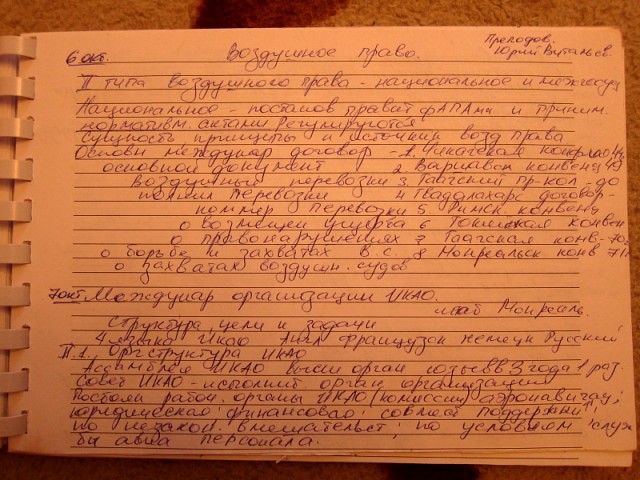 6 окт. Воздушное право. Преподов. Юрий Витальев.
II типа воздушного права - национальное и межгосуд
Национальное - постанов правит ФАПами и приним.
нормативн. актами регулируются
Сущность принципы и источник возд права
Основн междунар договор - 1. Чикагская конф
основной документ 2. Варшавск конвенц
Воздушные перевозки 3. Гаагский пр-кол до
полнил перевозки 4 Гвадалахарс договор-
перевозки 5. Римск. конвенц
о возмещен ущерба 6 Токийская конвен
о правонарушениях 7 Гаагская конв- 70г
о борьбе и захватах В.С. 8 Монреальск конв 71г
о захватах воздушн. судов
7 окт Междунар организации ИКАО.
Монреаль.
Структура, цели и задачи
4 языка ИКАО Англ Французск немецк Русский
П.1. Оргструктура ИКАО
Ассамблея ИКАО высш орган созыв в 3 года 1 раз.
Совет ИКАО - исполнит орган организации
Постоян рабоч. органы ИКАО (комиссии) аэронавигац;
юридическая; финансовая; совмест поддержки;
по незакон. вмешательст; по условиям служ
бы авиа персонала.